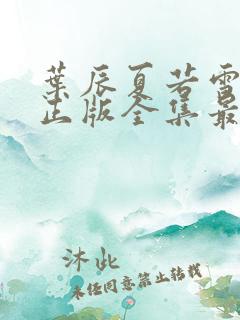 葉辰夏若雪
正版全集最
沐此
未经同意禁止转载